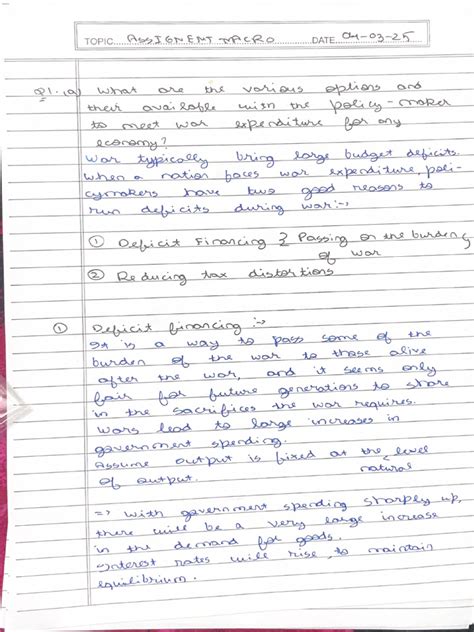 TOPIC.....ASSIGNENT MACRO.......DATE..04-03-25
Q1. (a) What are the various options and
their available with the policy-maker
to meet war expenditure for any
economy?
War typically bring large budget deficits.
When a nation faces war expenditure, poli-
cymakers have two good reasons to
run deficits during war:-
① Deficit Financing & Passing on the burden
of war
② Reducing tax distortions
① Deficit financing :-
It is a way to pass some of the
burden of the war to those alive
after the war, and it seems only
fair for future generations to share
in the sacrifices the war requires.
Wars lead to large increases in
government spending.
Assume output is fixed at the natural level
of output.
⇒ With government spending sharply up,
there will be a very large increase
in the demand for goods.
→ Interest rates will rise, to maintain
equilibrium.